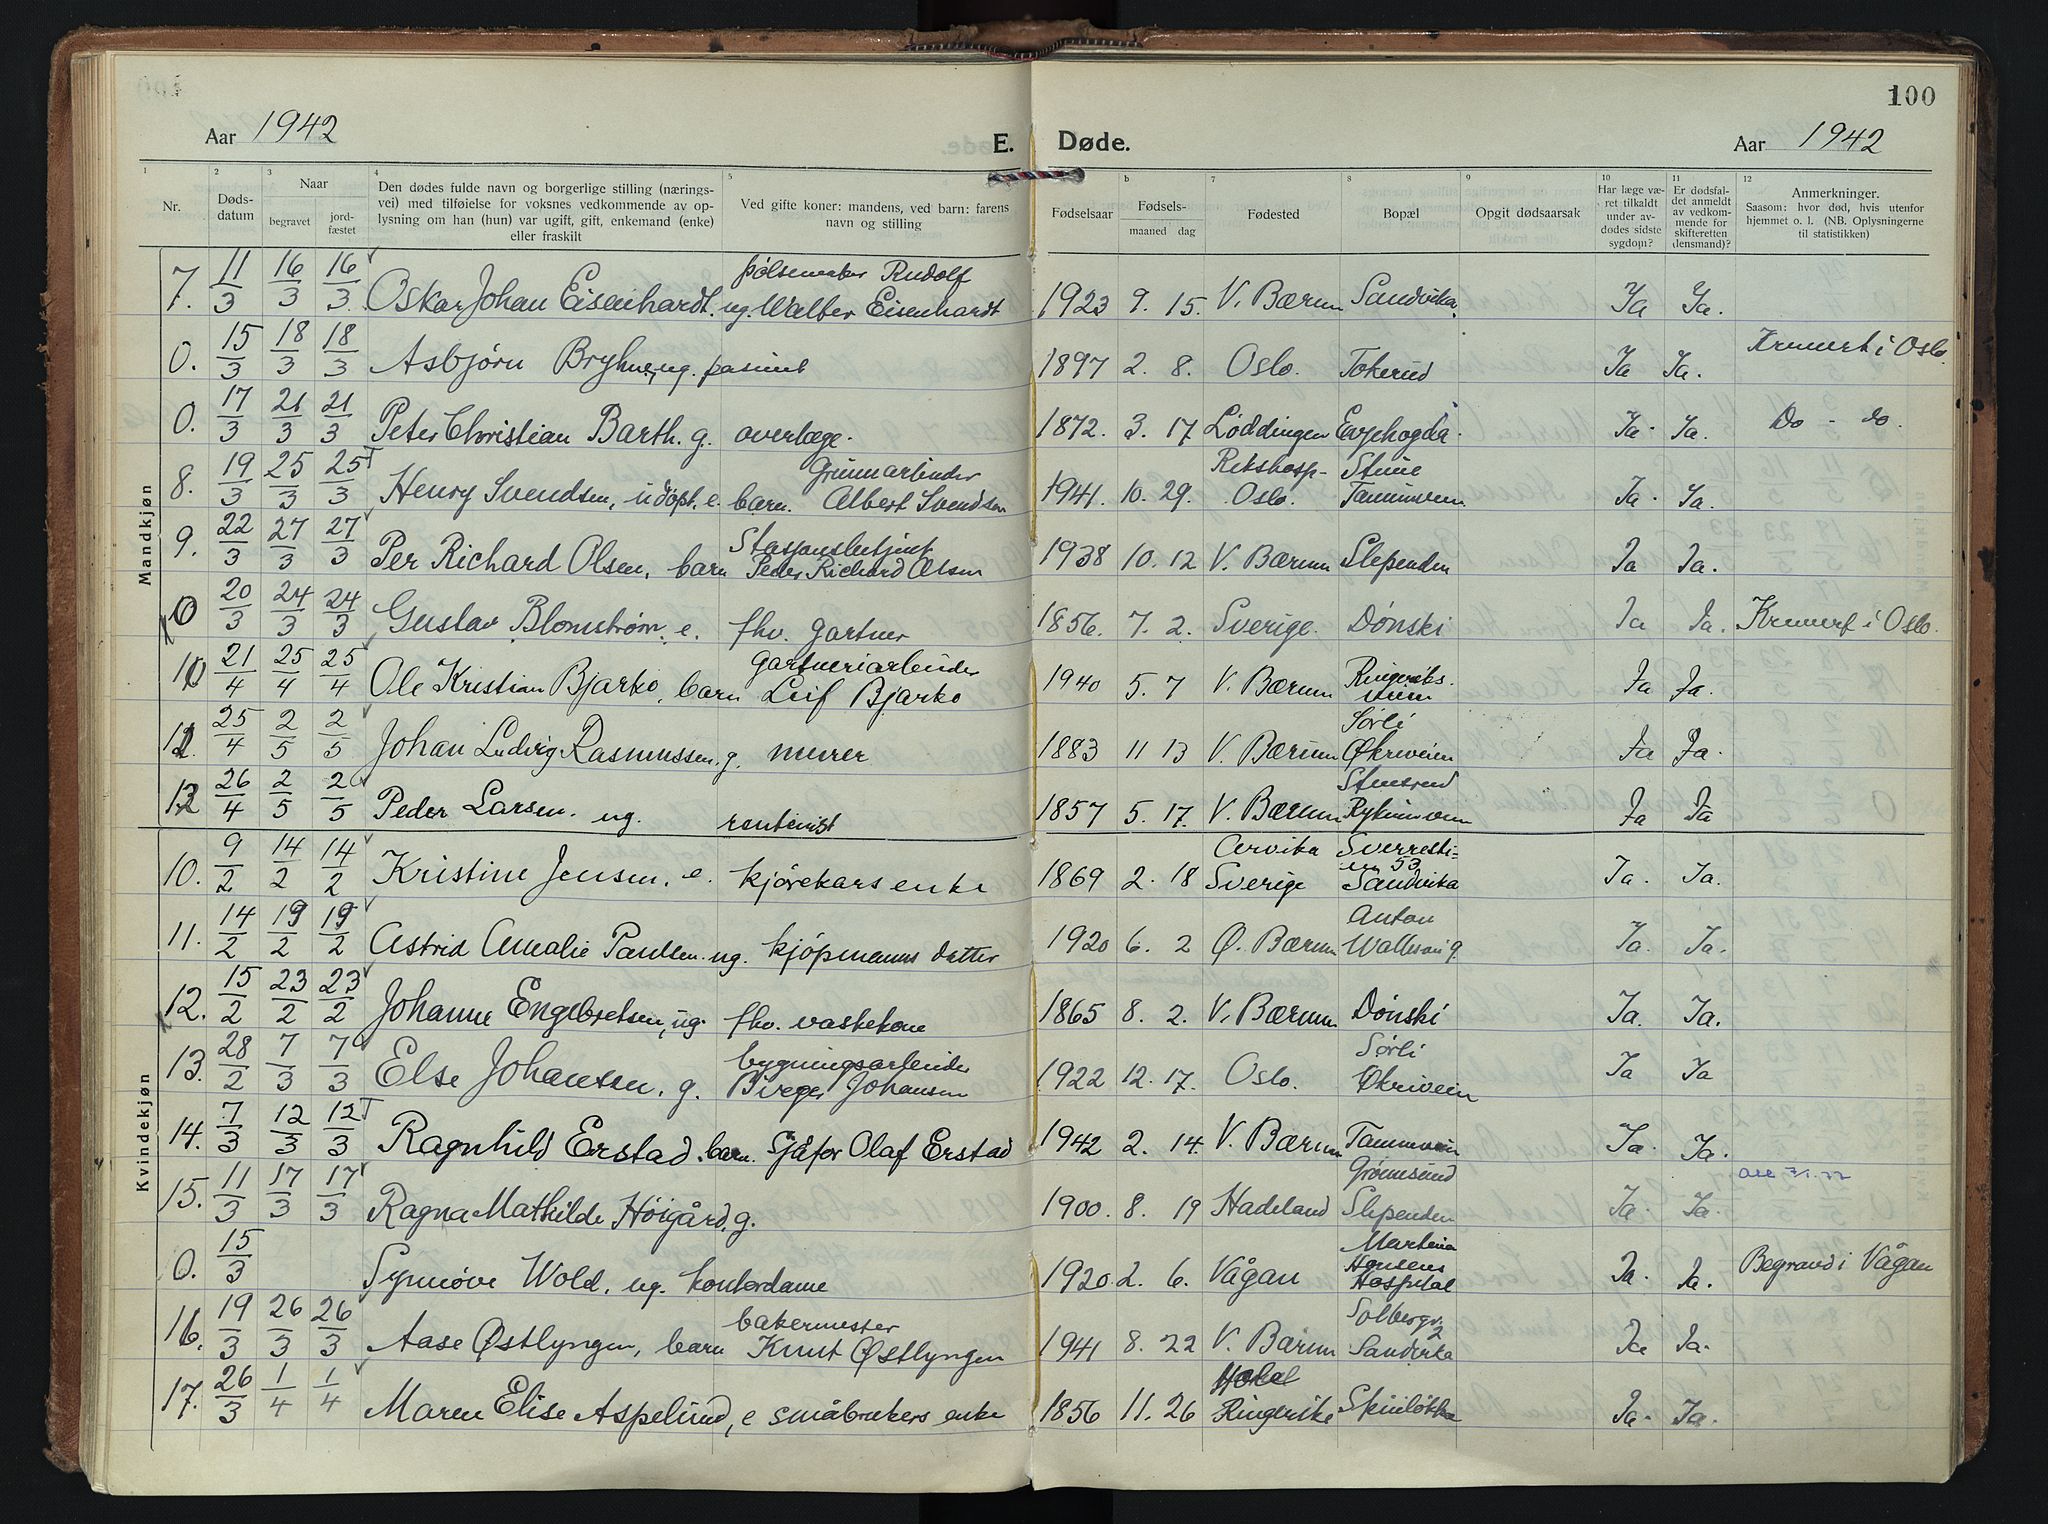 100
Aar 1942 E. Døde. Aar 1942
1 2 3 4 5 6 7 8 9 10 11 12
Nr.
Dødsdatum
Naar
begravet
jordfæstet
Den dødes fulde navn og borgerlige stilling (nærings-
vei) med tilføielse for voksnes vedkommende av op-
lysning om han (hun) var ugift, gift, enkemand (enke)
eller fraskilt
Ved gifte koner: mandens, ved barn: farens
navn og stilling
Fødselsaar
b
Fødsels-
maaned dag
Fødested
Bopæl
Opgit dødsaarsak
Har læge væ-
ret tilkaldt
under av-
dødes sidste
sygdom?
Er dødsfal-
det anmeldt
av vedkom-
mende for
skifteretten
(lensmand)?
Anmerkninger.
Saasom: hvor død, hvis utenfor
hjemmet o. l. (NB. Oplysningerne
til statistikken)
Mandkjøn
7. 11/3 16/3 16/3 Oskar Johan Eisenhardt. ug. pølsemaker Rudolf Walter Eisenhardt 1923 9. 15. V. Bærum Sandvika. Ja Ja.
0. 15/3 18/3 18/3 Asbjørn Bryhne, ug. pasient 1897 2. 8. Oslo. Tokerud Ja Ja. Kremert i Oslo.
0. 17/3 21/3 21/3 Peter Christian Barth. g. overlæge. 1872. 3. 17 Løddingen Ja. Ja. Do - do.
8. 19/3 25/3 25/3 Henry Svendsen, udøpt. e. barn. Grunnarbeider Albert Svendsen 1941. 10. 29. Rikshosp- Oslo. Stuve Tanumveien Ja. Ja.
9. 22/3 27/3 27/3 Per Richard Olsen, barn Stasjonsbetjent Peder Richard Olsen 1938 10. 12 V. Bærum Slependen Ja Ja.
0 20/3 24/3 24/3 Gustav Blomstrøm. e. fhv. gartner 1856. 7. 2. Sverige. Dønski Ja Ja. Kremert i Oslo.
10 21/4 25/4 25/4 Ole Kristian Bjarko, barn Gartneriarbeider Leif Bjarko 1940 5. 7 V. Bærum Ringeriks-veien Ja Ja.
12. 25/4 2/5 2/5 Johan Ludvig Rasmussen. g. murer 1883 11 13 V. Bærum Sørli Økriveien Ja Ja.
12 26/4 2/5 2/5 Peder Larsen. ug. rentenist 1857 5. 17. V. Bærum Stensrud Rykinnveien Ja Ja
Kvindekjøn
10. 9/2 14/2 14/2 Kristine Jensen. e. kjørekars enke 1869 2. 18 Arvika Sverige Sverresti-en 53 Sandvika Ja. Ja.
11. 14/2 19/2 19/2 Astrid Amalie Paulsen. ug. kjøpmanns datter 1920 6. 2 Ø. Bærum Anton Ja. Ja.
12. 15/2 23/2 23/2 Johanne Engebretsen, ug. fhv. vaskekone 1865 8. 2. V. Bærum Dønski Ja. Ja.
13. 28/2 7/3 7/3 Else Johansen. g. bygningsarbeider Birger Johansen 1922 12. 17. Oslo. Sørli Økriveien Ja Ja
14. 7/3 12/3 12/3 Ragnhild Erstad. barn. Sjåfør Olaf Erstad 1942 2. 14. V. Bærum Tanumveien Ja. Ja.
15. 11/3 17/3 17/3 Ragna Mathilde Høigård, g. 1900. 8. 19 Hadeland Grønsund Slependen Ja. Ja.
0. 15/3 Synnøve Wold, ug. kontordame 1920. 2. 6. Vågan Martina Hansens Hospital Ja. Ja. Begravd i Vågan
16. 19/3 26/3 26/3 Aase Østlyngen, barn bakermester Knut Østlyngen 1941 8. 22 V. Bærum Solbergv. 2 Sandvika Ja Ja.
17. 26/3 1/4 1/4 Maren Elise Aspelund, e småbrukers enke 1856 11. 26 Hole Ringerike Skuiløkka Ja. Ja.